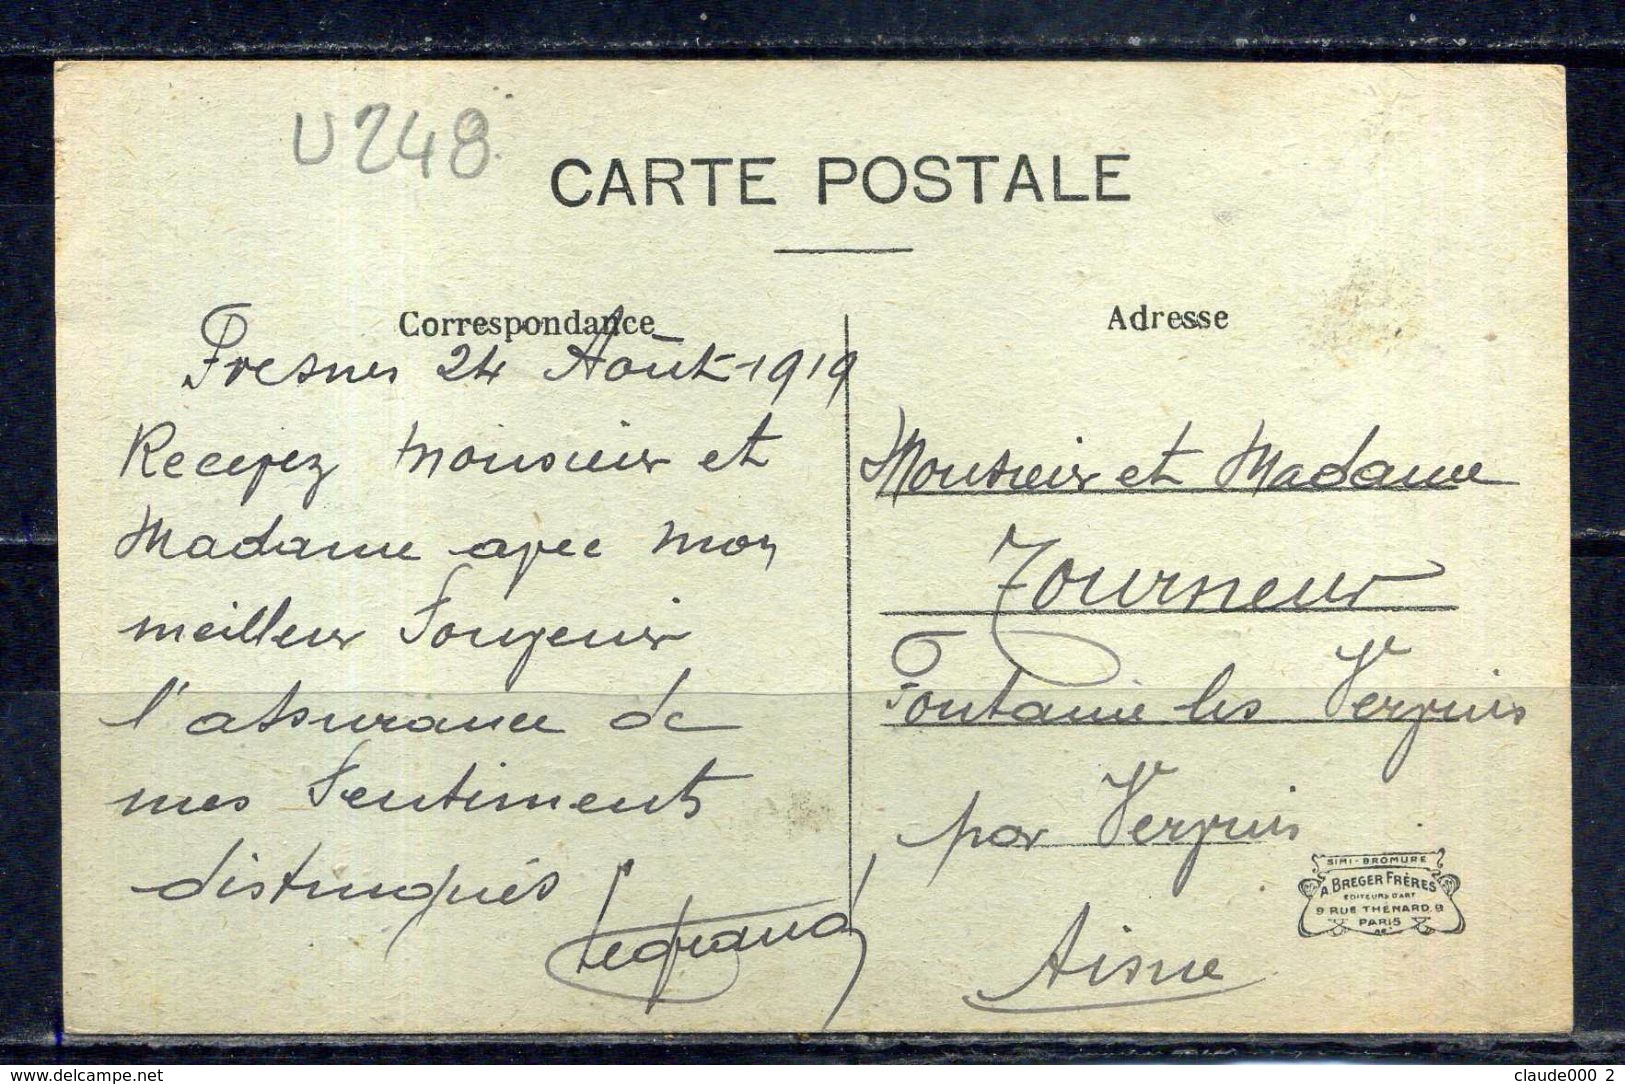 U248
CARTE POSTALE
Correspondance
Fresnes 24 Août 1919
Recevez Monsieur et
Madame avec mon
meilleur Souvenir
l'assurance de
mes Sentiments
distingués
Legrand
Adresse
Monsieur et Madame
Tourneur
Fontaine les Vervins
par Vervins
Aisne
SIMI-BROMURE
A. BREGER FRÈRES
EDITEURS D'ART
9 RUE THÉNARD, 9
PARIS
delcampe.net
claude000_2